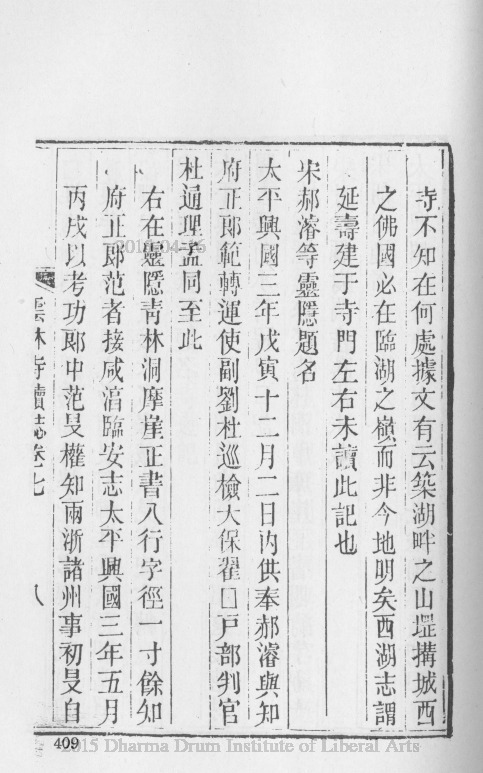 寺不知在何處據文有云築湖畔之山壟搆城西
之佛國必在臨湖之嶺而非今地明矣西湖志謂
延壽建于寺門左右未讀此記也
宋郝濬等靈隱題名
太平興國三年戊寅十二月二日內供奉郝濬與知
府正郎範轉運使副劉杜巡檢大保翟囗戶部判官
杜通理孟同至此
右在靈隱青林洞摩崖正書八行字徑一寸餘知
府正郎范者接咸淳臨安志太平興國三年五月
丙戌以考功郎中范旻權知兩浙諸州事初旻自
雲林寺續誌卷七
八
409
2015 Dharma Drum Institute of Liberal Arts